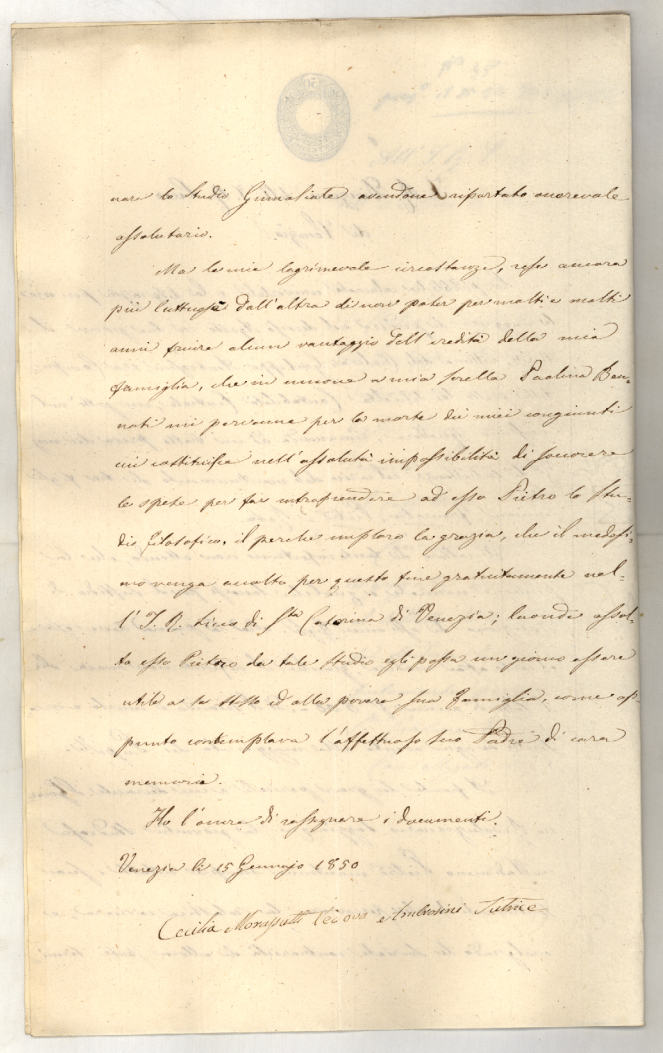 nare lo Studio Ginnasiale avendone riportato onorevole
assolutorio.
Ma la mia lagrimevole circostanza, resa ancora
più luttuosa dall'altra di non poter per molti e molti
anni fruire alcun vantaggio dell'eredità della mia
famiglia, che in unione a mia sorella Paolina
mi pervenne per la morte dei miei congiunti
mi costituisce nell'assoluta impossibilità di
le spese per far intraprendere ad esso Pietro lo Stu-
dio filosofico, il perche imploro la grazia, che il medesi-
mo venga accolto per questo fine gratuitamente nel-
l'I. R. Liceo di Sta Caterina di Venezia; laonde assol-
to esso Pietro da tale studio egli possa un giorno essere
utile a se stesso ed alla povera sua famiglia, come ap-
punto contemplava l'affettuoso suo Padre di cara
memoria.
Ho l'onore di rassegnare i documenti.
Venezia li 15 Gennajo 1850
Cecilia Ambrosini Tutrice